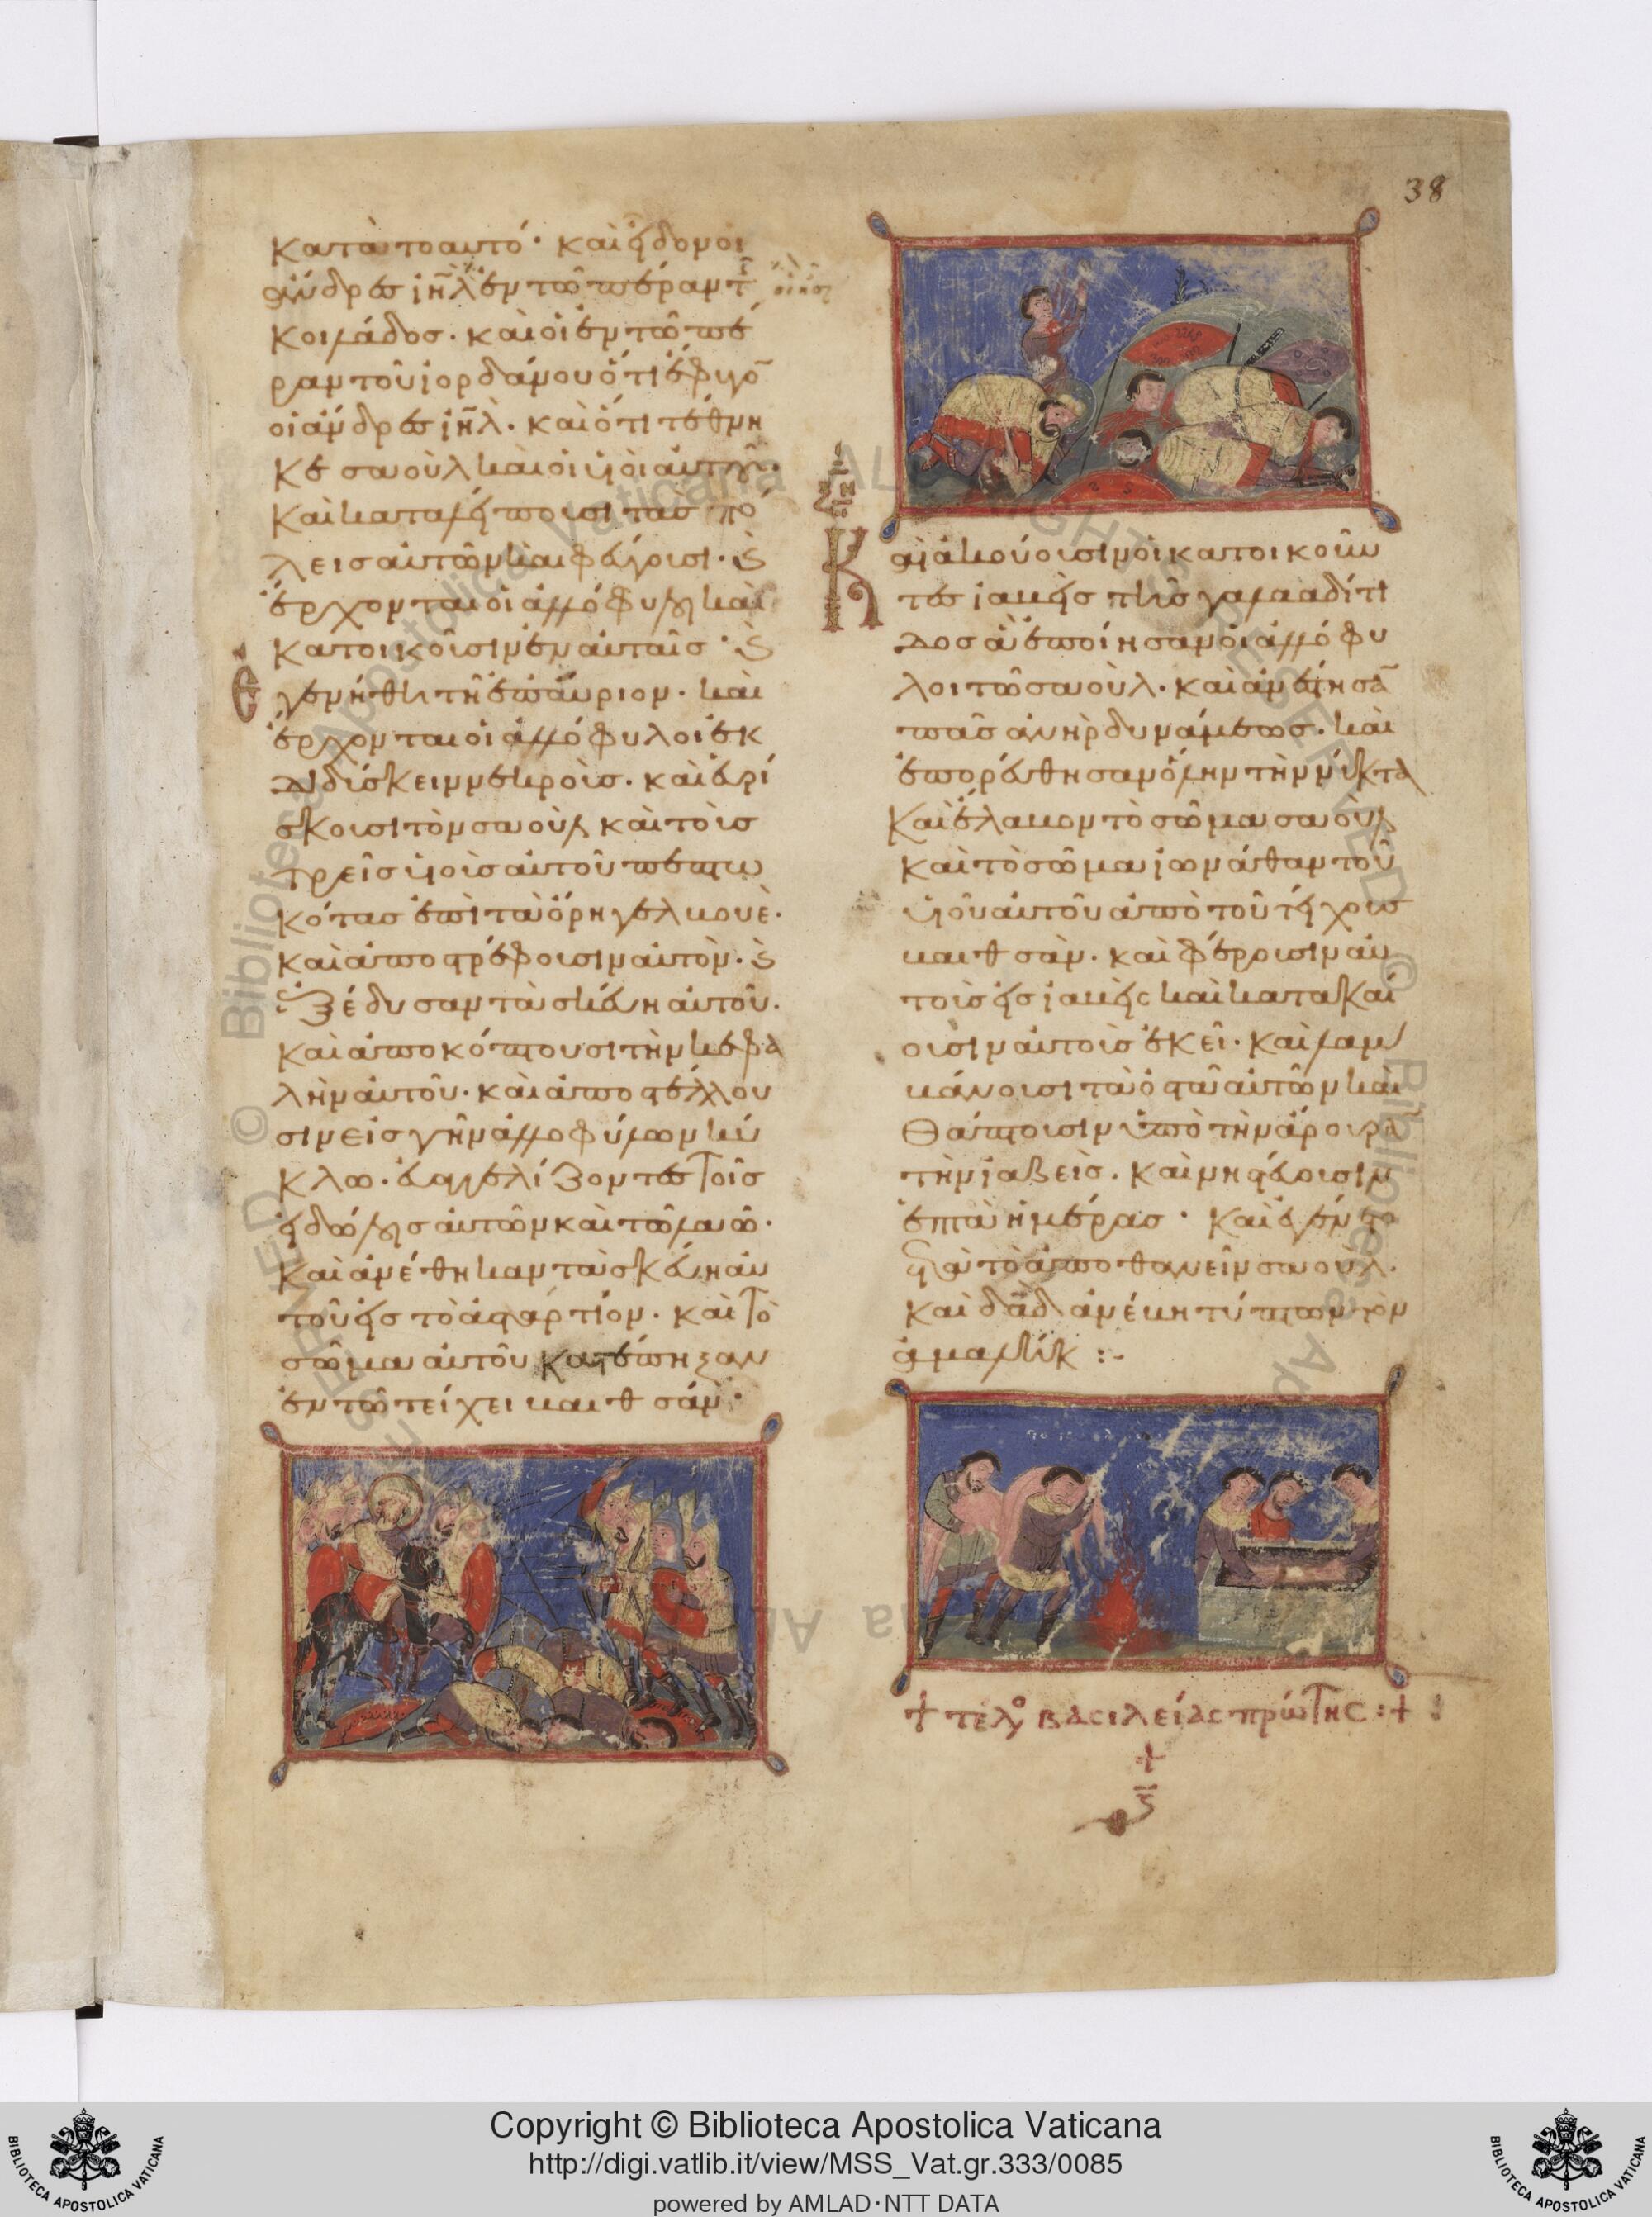 38
κατὰ τοαυτό· καὶ εἶδον οἱ
ἄνδρες ἰη̅λ ἐν τῶ πέραν τ
κοιλάδος· καὶ οἱ ἐν τῶ πέ
ραν τοῦ ἰορδάνου ὅτι ἔφυγο̅
οἱ ἄνδρες ἰη̅λ· καὶ ὅτι τέθνη
κε σαοὺλ καὶ οἱ υἱοὶ αὐτοῦ·
καὶ καταλείπουσι τὰς πό
λεις αὐτῶν καὶ φεύγουσι· ϗ
ἔρχονται οἱ ἀλλόφυλοι καὶ
κατοικοῦσιν ἐν αὐταῖς· ϗ
Ἐγενήθη τῆ ἐπαύριον· καὶ
ἔρχονται οἱ ἀλλόφυλοι ἐκ
διδύσκειν νεκροὺς· καὶ εὑρί
σκουσι τὸν σαοὺλ καὶ τοὺς
τρεῖς υἱοὺς αὐτοῦ πεπτω
κότας ἐπὶ τὰ ὄρη γελκουὲ·
καὶ ἀποστρέφουσιν αὐτὸν· ϗ
ἐξέδυσαν τὰ σκεύη αὐτοῦ·
καὶ ἀποκόπτουσι τὴν κεφα
λὴν αὐτοῦ· καὶ ἀποστέλλου
σιν εἰς γῆν ἀλλοφύλων κύ
κλω· εὐαγγελίζοντες τοῖς
εἰδώλοις αὐτῶν καὶ τῶ λαῶ·
καὶ ἀνέθηκαν τὰ σκεύη αὐ
τοῦ εἰς τὸ ἀσταρτίον· καὶ τὸ
σῶμα αὐτοῦ κατέπηξαν
ἐν τῶ τείχει βαιθσάν·
Καὶ ἀκούουσιν οἱ κατοικοῦν
τες ἰαβεὶς τῆς γαλααδίτι
δος ἃ ἐποίησαν οἱ ἀλλόφυ
λοι τῶ σαοὺλ· καὶ ἀνέστησα̅
πᾶς ἀνὴρ δυνάμεως· καὶ
ἐπορεύθησαν ὅλην τὴν νύκτα
καὶ ἔλαβον τὸ σῶμα σαοὺλ
καὶ τὸ σῶμα ἰωνάθαν τοῦ
υἱοῦ αὐτοῦ ἀπὸ τοῦ τείχους
βαιθσὰν· καὶ φέρουσιν αὐ
τοὺς εἰς ἰαβεὶς καὶ κατακαί
ουσιν αὐτοὺς ἐκεῖ· καὶ λαμ
βάνουσι τὰ ὀστᾶ αὐτῶν καὶ
θάπτουσιν ὑπὸ τὴν ἄρουρα
τὴν ἰαβεὶς· καὶ νηστεύουσιν
ἑπτὰ ἡμέρας· καὶ ἐγένετο
μετὰ τὸ ἀποθανεῖν σαοὺλ·
καὶ δα̅δ ἀνέβη τύπτων τὸν
ἀμαλὴκ :-
+ τέλος βασιλείας πρώτης :+
+
Copyright © Biblioteca Apostolica Vaticana
http://digi.vatlib.it/view/MSS_Vat.gr.333/0085
powered by AMLAD·NTT DATA
BIBLIOTECA APOSTOLICA VATICANA
BIBLIOTECA APOSTOLICA VATICANA